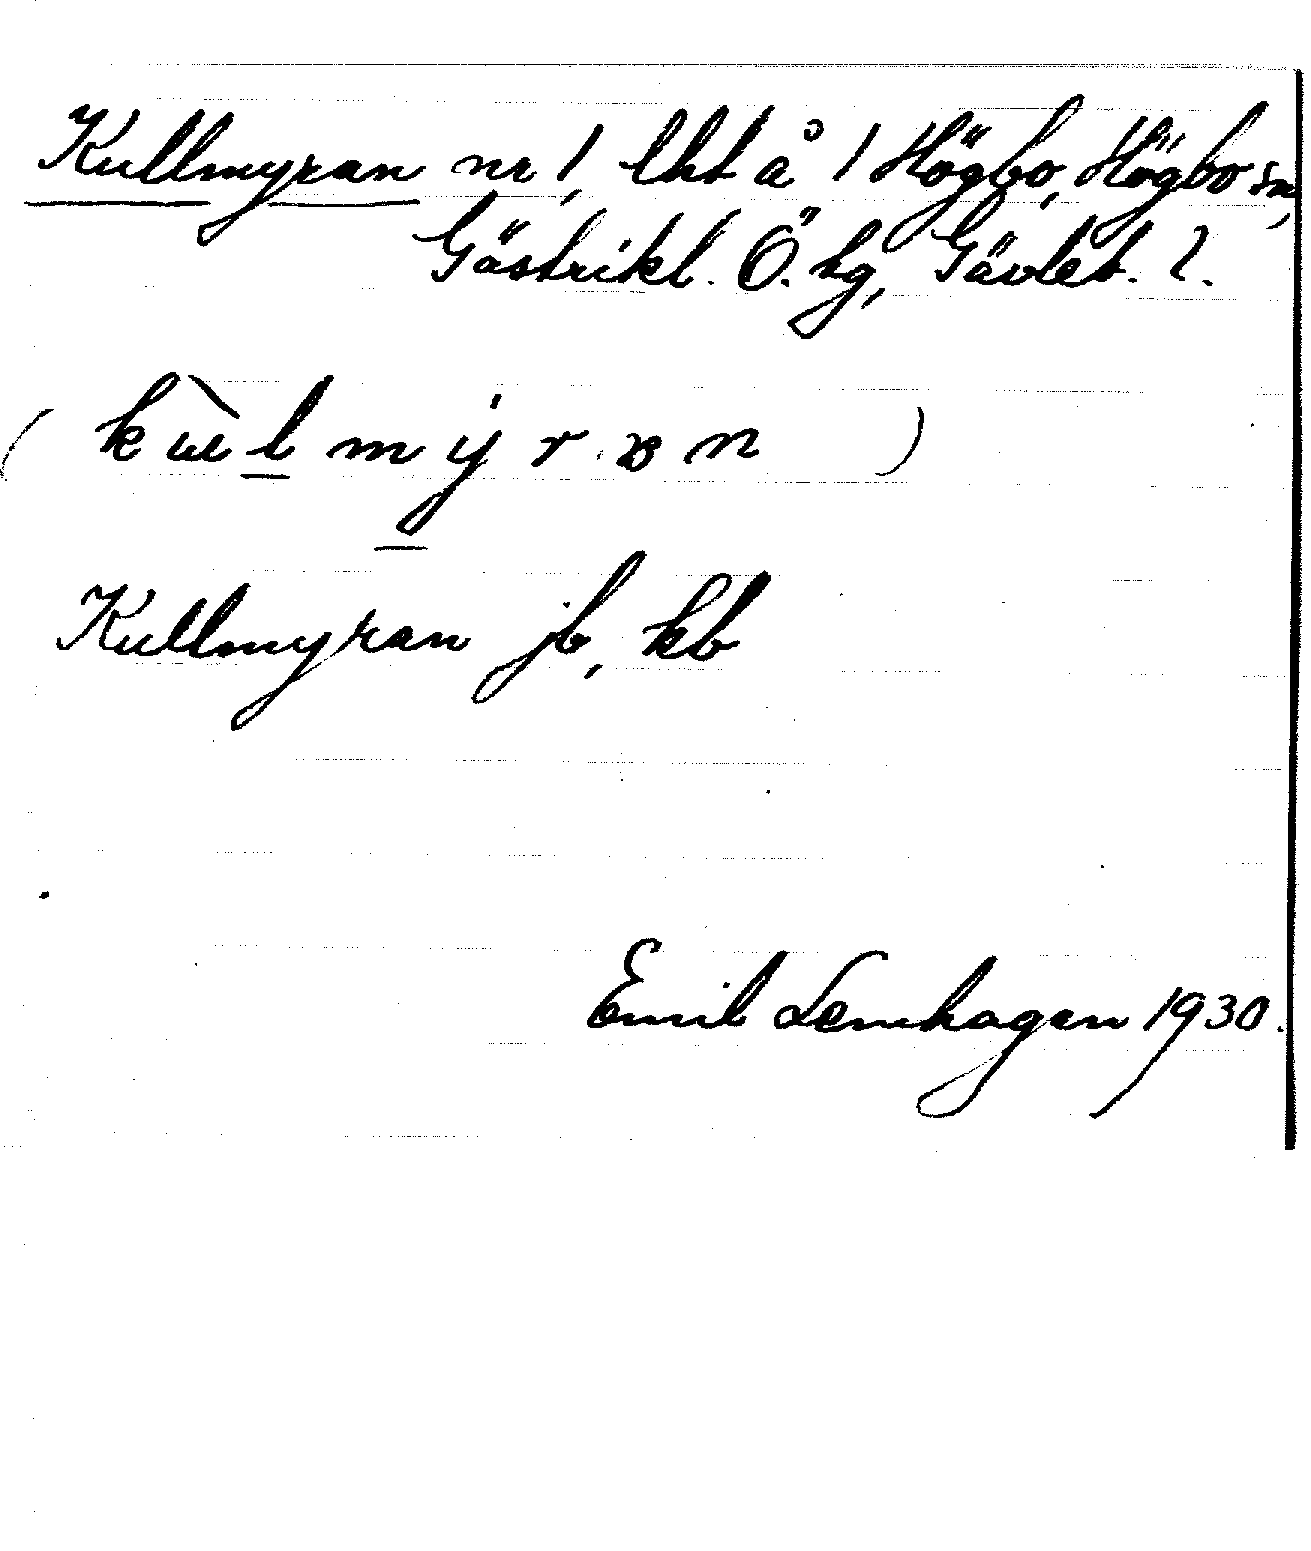 Kullmyran nr 1, lht å 1 Högbo, Högbo sn,
Gästrikl. Ö. hg, Gävleb. l.
Kullmyran jb, kb
Emil Lemhagen 1930.